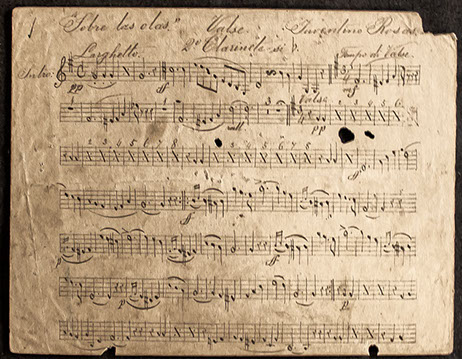 "Sobre las olas." Valse. Juventino Rosas.
Larghetto. 2º Clarinete si b. Tempo di Valse.
Intro:
pp ff mf
Valse
rall pp
2 3 4 5 6
2 3 4 5 6 7 8 2 3 4 5 6 7 8
ff
ff
p ff ff
p p